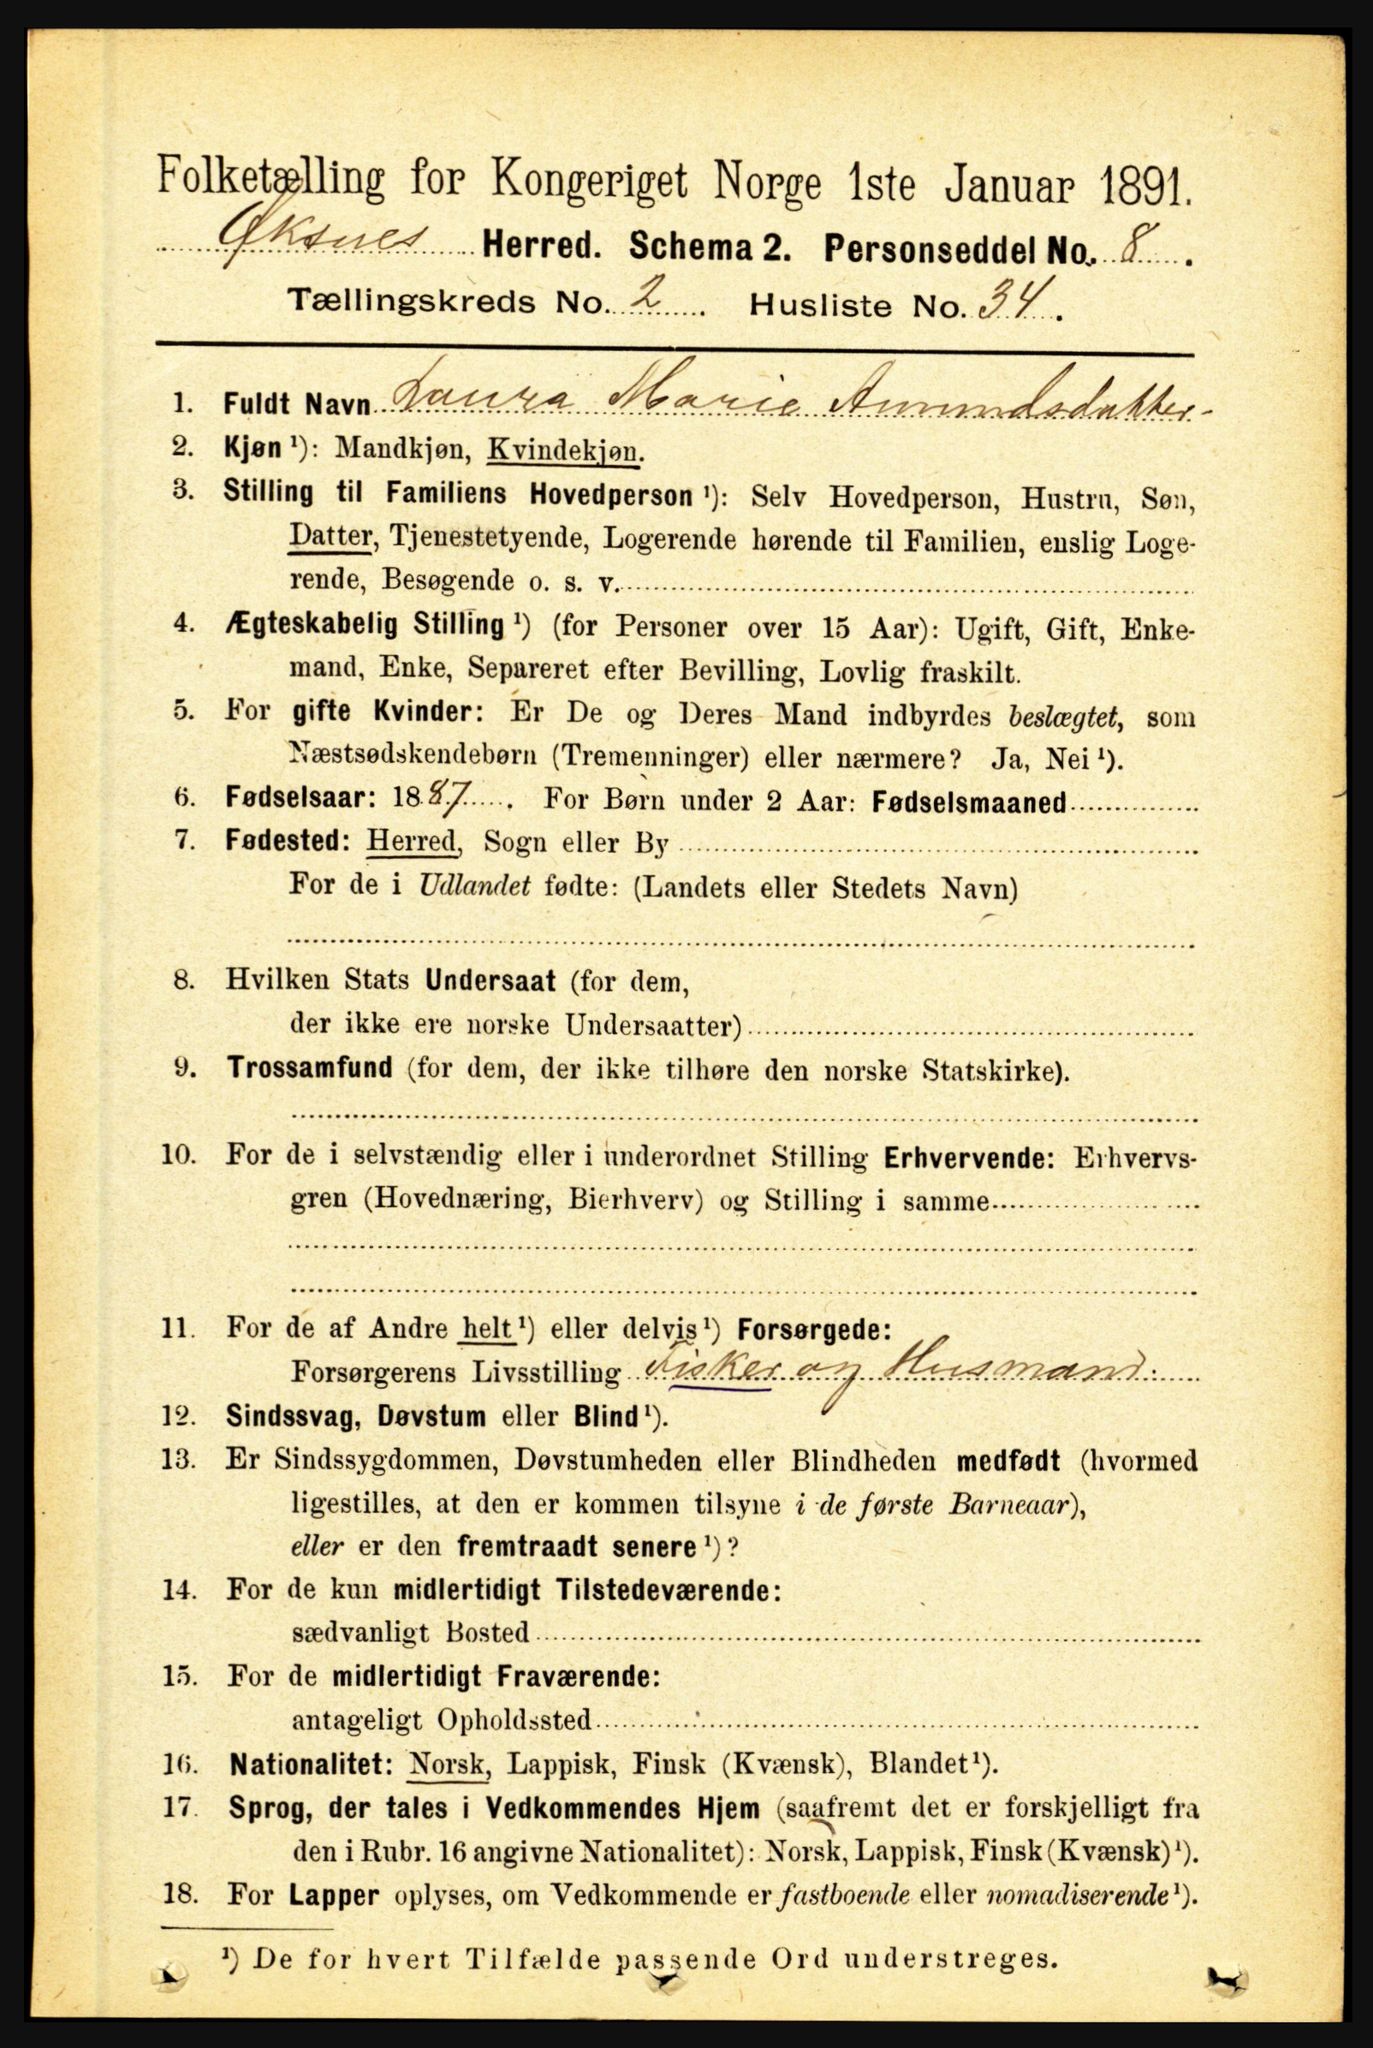 Folketælling for Kongeriget Norge 1ste Januar 1891.
Øksnes Herred. Schema 2. Personseddel No. 8.
Tællingskreds No. 2. Husliste No. 34.
1. Fuldt Navn Laura Marie Amundsdatter
2. Kjøn ¹): Mandkjøn, Kvindekjøn.
3. Stilling til Familiens Hovedperson ¹): Selv Hovedperson, Hustru, Søn,
Datter, Tjenestetyende, Logerende hørende til Familien, enslig Loge-
rende, Besøgende o. s. v.
4. Ægteskabelig Stilling ¹) (for Personer over 15 Aar): Ugift, Gift, Enke-
mand, Enke, Separeret efter Bevilling, Lovlig fraskilt.
5. For gifte Kvinder: Er De og Deres Mand indbyrdes beslægtet, som
Næstsødskendebørn (Tremenninger) eller nærmere? Ja, Nei ¹).
6. Fødselsaar: 1887. For Børn under 2 Aar: Fødselsmaaned
7. Fødested: Herred, Sogn eller By
For de i Udlandet fødte: (Landets eller Stedets Navn)
8. Hvilken Stats Undersaat (for dem,
der ikke ere norske Undersaatter)
9. Trossamfund (for dem, der ikke tilhøre den norske Statskirke).
10. For de i selvstændig eller i underordnet Stilling Erhvervende: Erhvervs-
gren (Hovednæring, Bierhverv) og Stilling i samme
11. For de af Andre helt ¹) eller delvis ¹) Forsørgede:
Forsørgerens Livsstilling Fisker og Husmand.
12. Sindssvag, Døvstum eller Blind ¹).
13. Er Sindssygdommen, Døvstumheden eller Blindheden medfødt (hvormed
ligestilles, at den er kommen tilsyne i de første Barneaar),
eller er den fremtraadt senere ¹)?
14. For de kun midlertidigt Tilstedeværende:
sædvanligt Bosted
15. For de midlertidigt Fraværende:
antageligt Opholdssted
16. Nationalitet: Norsk, Lappisk, Finsk (Kvænsk), Blandet ¹).
17. Sprog, der tales i Vedkommendes Hjem (saafremt det er forskjelligt fra
den i Rubr. 16 angivne Nationalitet): Norsk, Lappisk, Finsk (Kvænsk) ¹).
18. For Lapper oplyses, om Vedkommende er fastboende eller nomadiserende ¹).
¹) De for hvert Tilfælde passende Ord understreges.